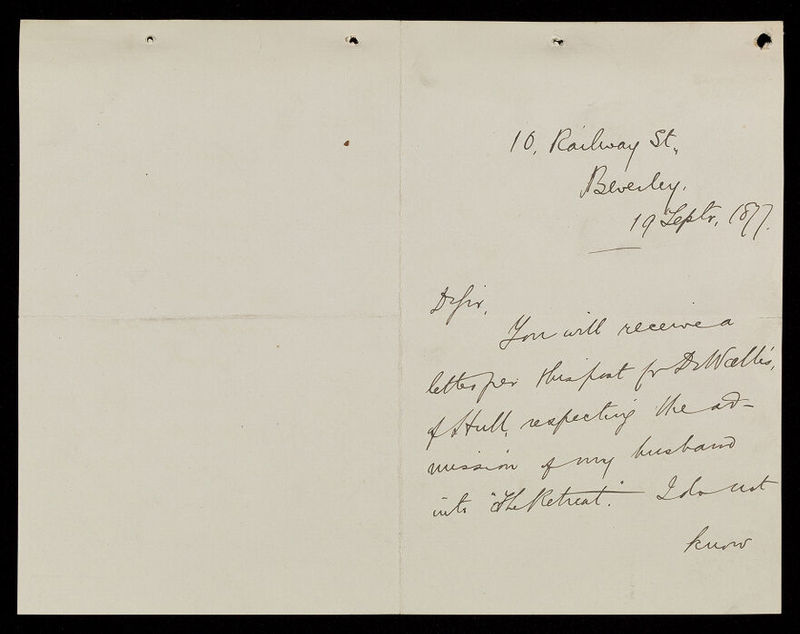 10, Railway St,
Beverley.
19 Septr, 1877.
Dr Sir,
You will receive a
letter per this post fr Dr Wallis,
of Hull, respecting the ad-
mission of my husband
into "The Retreat". I do not
know